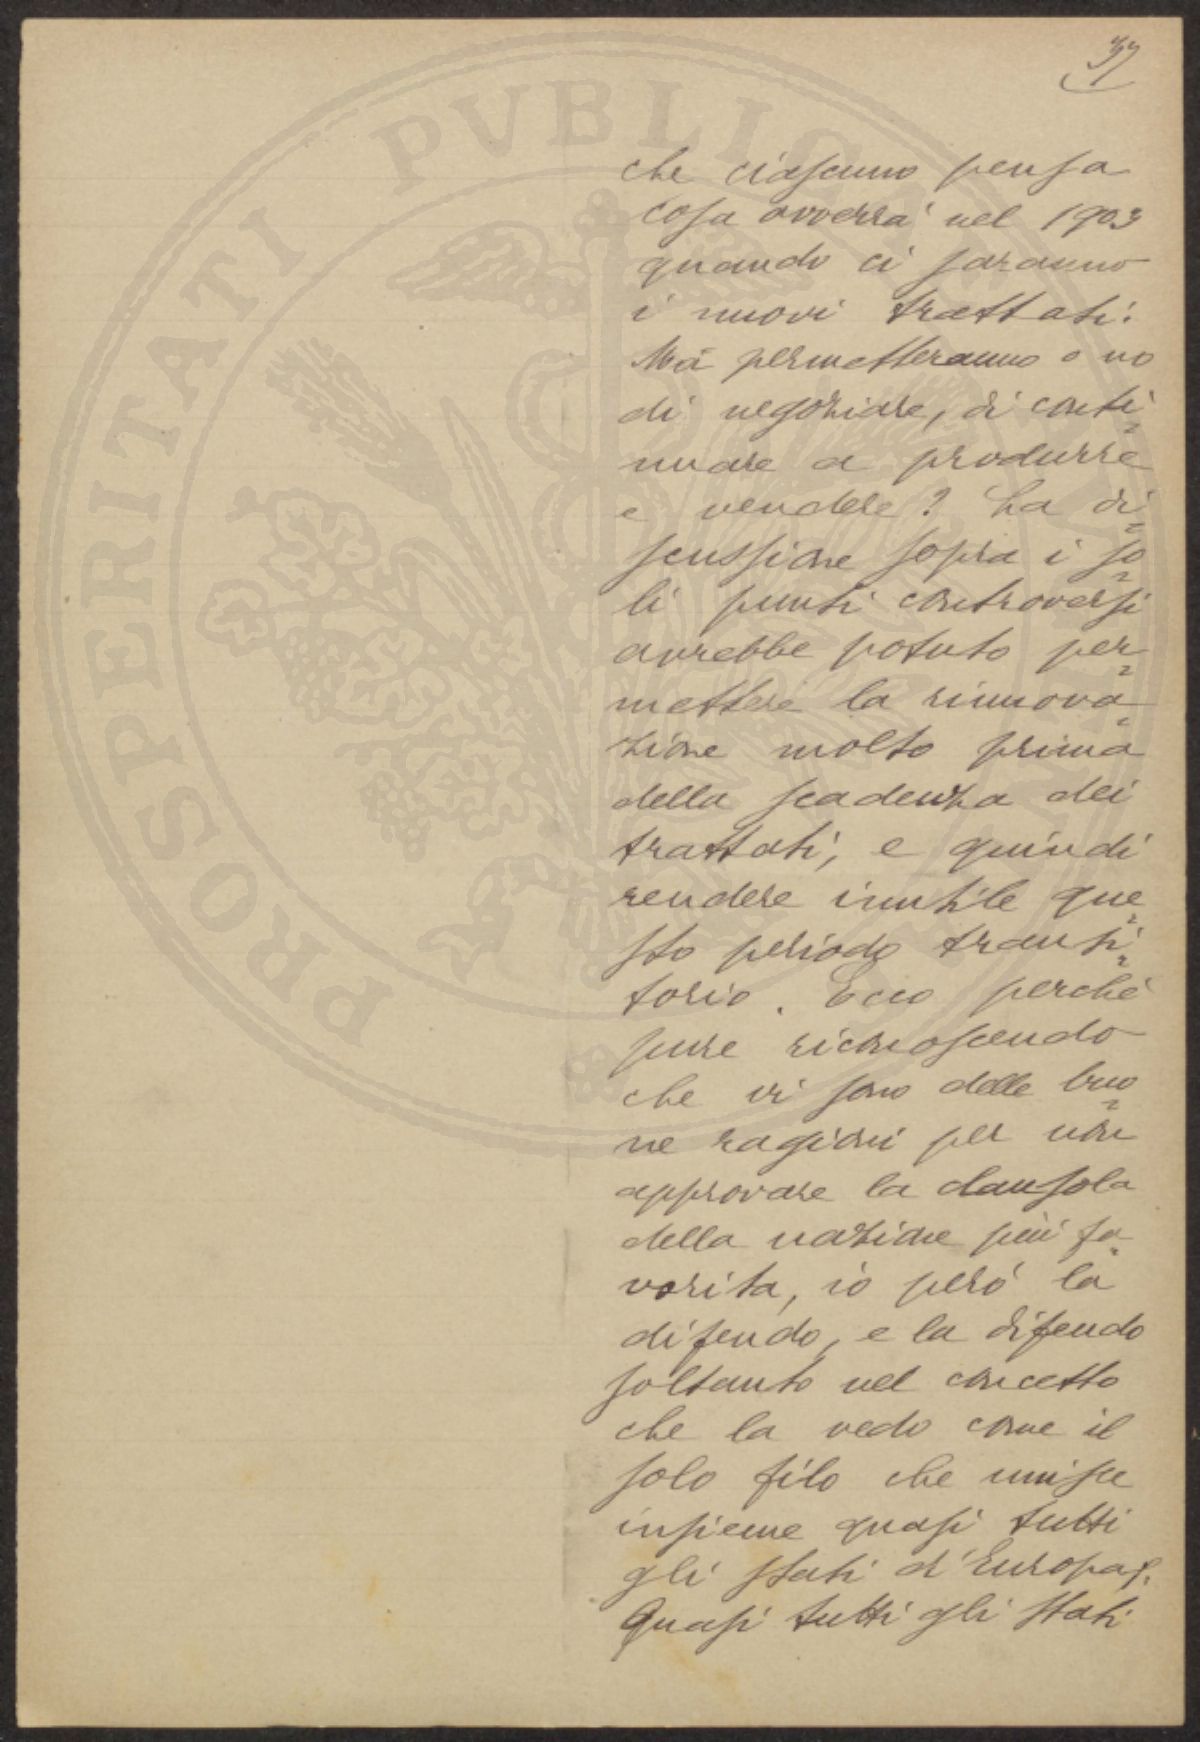 37
che ciascuno pensa
cosa avverrà nel 1903
quando ci saranno
i nuovi trattati.
Mà permetteranno o no
di negoziare, di conti=
nuare a produrre
e vendere? La di=
scussione sopra i so=
li punti controversi
avrebbe potuto per=
mettere la rinnova=
zione molto prima
della scadenza dei
trattati, e quindi
rendere inutile que=
sto periodo transi=
torio. Ecco perchè
pure riconoscendo
che vi sono delle buo=
ne ragioni per non
approvare la clausola
della nazione più fa=
vorita, io però la
difendo, e la difendo
soltanto nel concetto
che la vedo come il
solo filo che unisce
insieme quasi tutti
gli stati d'Europa.
Quasi tutti gli stati
PROSPERITATI PVBLICAE